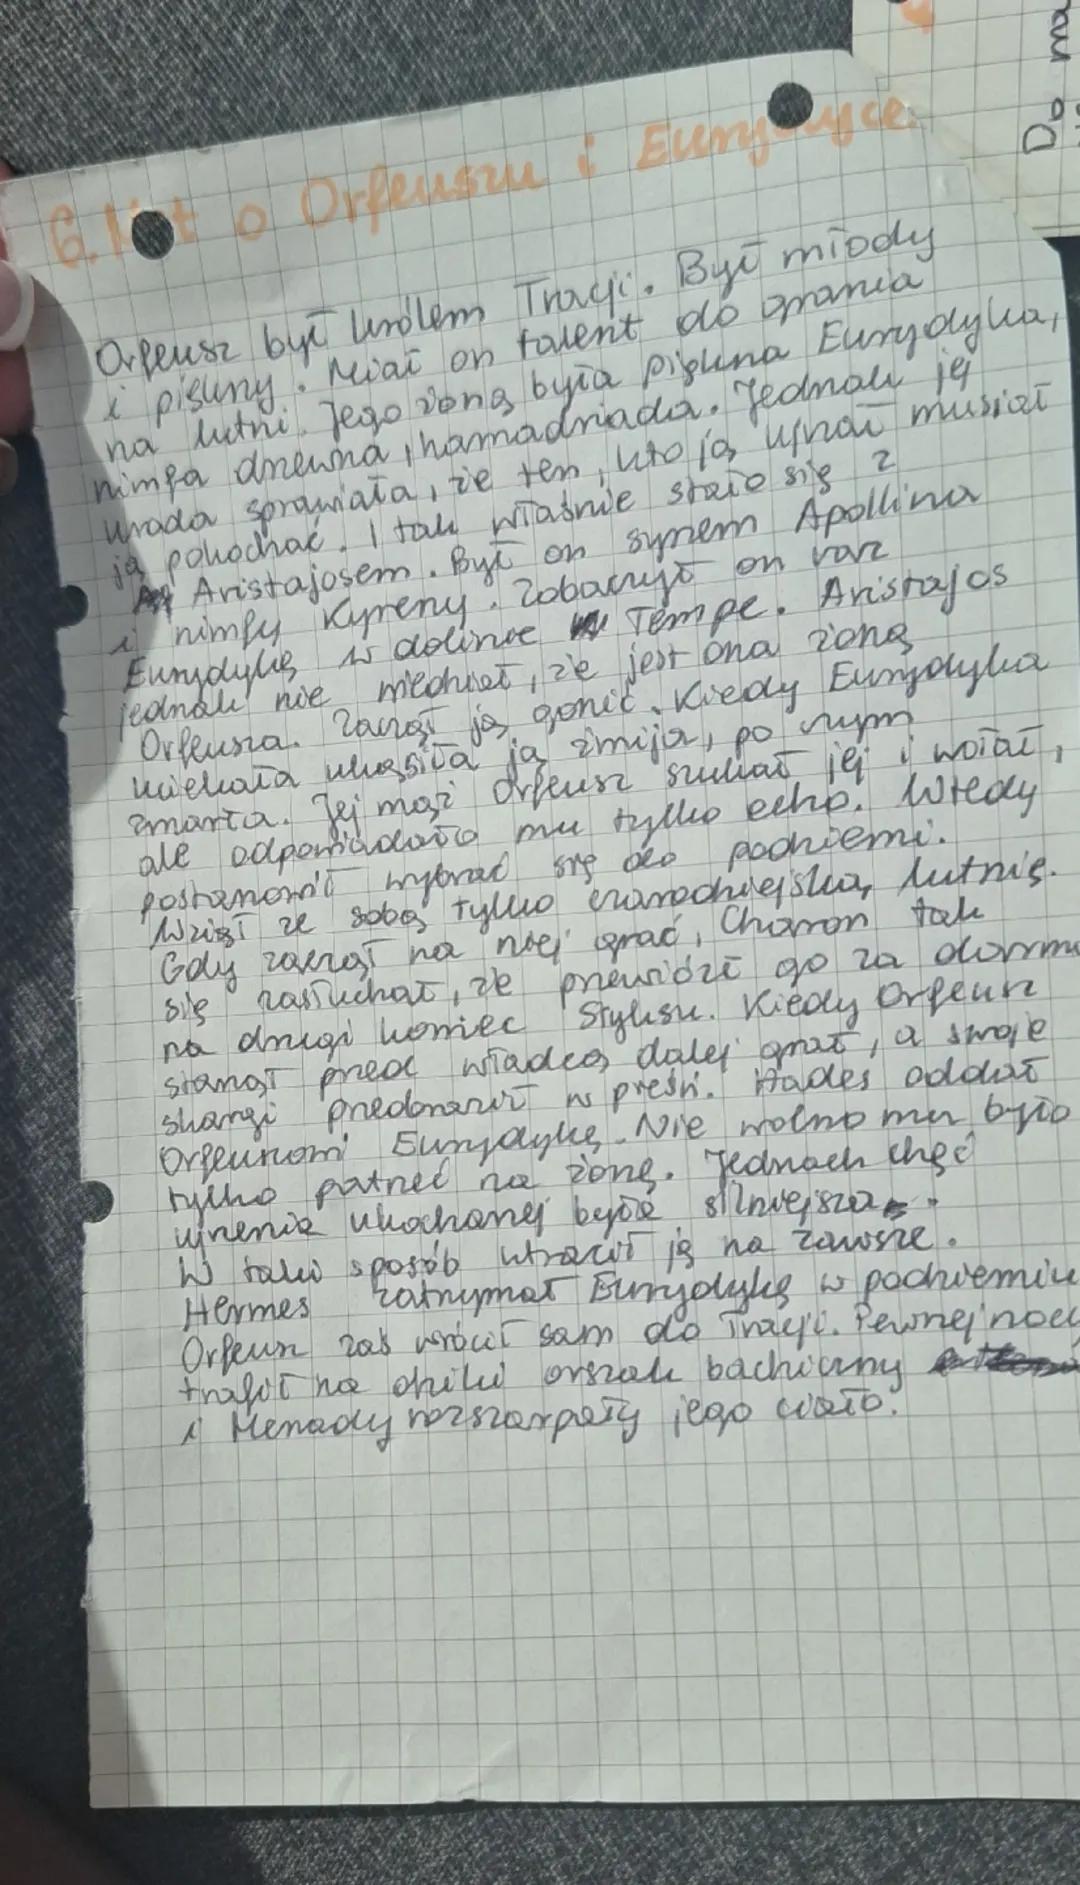 6. Mit o Orfeuszu i Eurydyce.
Orfeusz był królem Tracji. Był młody
i piękny. Miał on talent do grania
na lutni. Jego żoną była piękna Eurydyka,
nimfa drzewna, hamadriada. Jednak jej
uroda sprawiała, że ten, kto ją ujrzał musiał
ją pokochać. I tak właśnie stało się z
Aristajosem. Był on synem Apollina
i nimfy Kyreny. Zobaczył on raz
Eurydykę w dolinie Tempe. Aristajos
jednak nie wiedział, że jest ona żoną
Orfeusza. Zaczął ją gonić. Kiedy Eurydyka
uciekała ukąsiła ją żmija, po czym
zmarła. Jej mąż Orfeusz szukał jej i wołał,
ale odpowiadało mu tylko echo. Wtedy
postanowił wybrać się do podziemi.
Wziął ze sobą tylko czarodziejską lutnię.
Gdy zaczął na niej grać, Charon tak
się zasłuchał, że przewiózł go za darmo
na drugi koniec Styksu. Kiedy Orfeusz
stanął przed władcą dalej grał, a swoje
skargi przedstawił w pieśń. Hades oddał
Orfeuszowi Eurydykę. Nie wolno mu było
tylko patrzeć na żonę. Jednach chęć
ujrzenia ukochanej była silniejsza.
W taki sposób utracił ją na zawsze.
Hermes zatrzymał Eurydykę w podziemiu
Orfeusz zaś wrócił sam do Tracji. Pewnej nocy
trafił na dziki orszak bachiczny
i Menady rozszarpały jego ciało.
Do ma